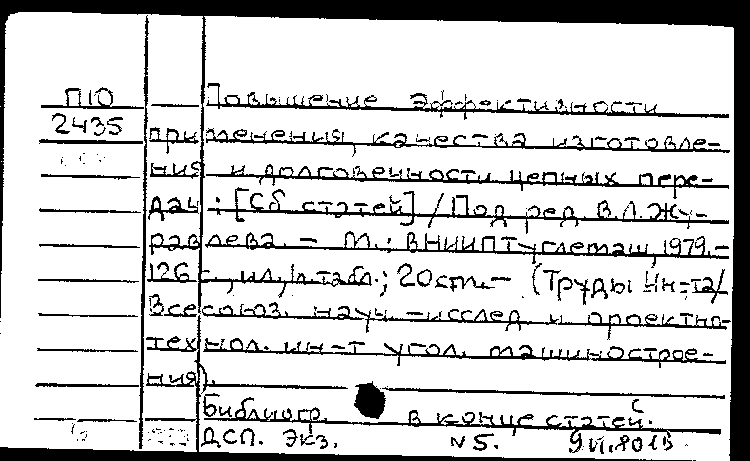 П10
2435
Повышение эффективности
применения, качества изготовле-
ния и долговечности цепных пере-
дач : [Сб статей] / Под ред. В.Л.Жу-
равлева. – М.: ВНИИПТуглемаш, 1979.–
126 с., ил., табл.; 20см.– (Труды Ин-та/
Всесоюз. науч.-исслед и проектно-
технол. ин-т угол. машинострое-
ния).
Библиогр. в конце статей.
ДСП. Экз. N5.